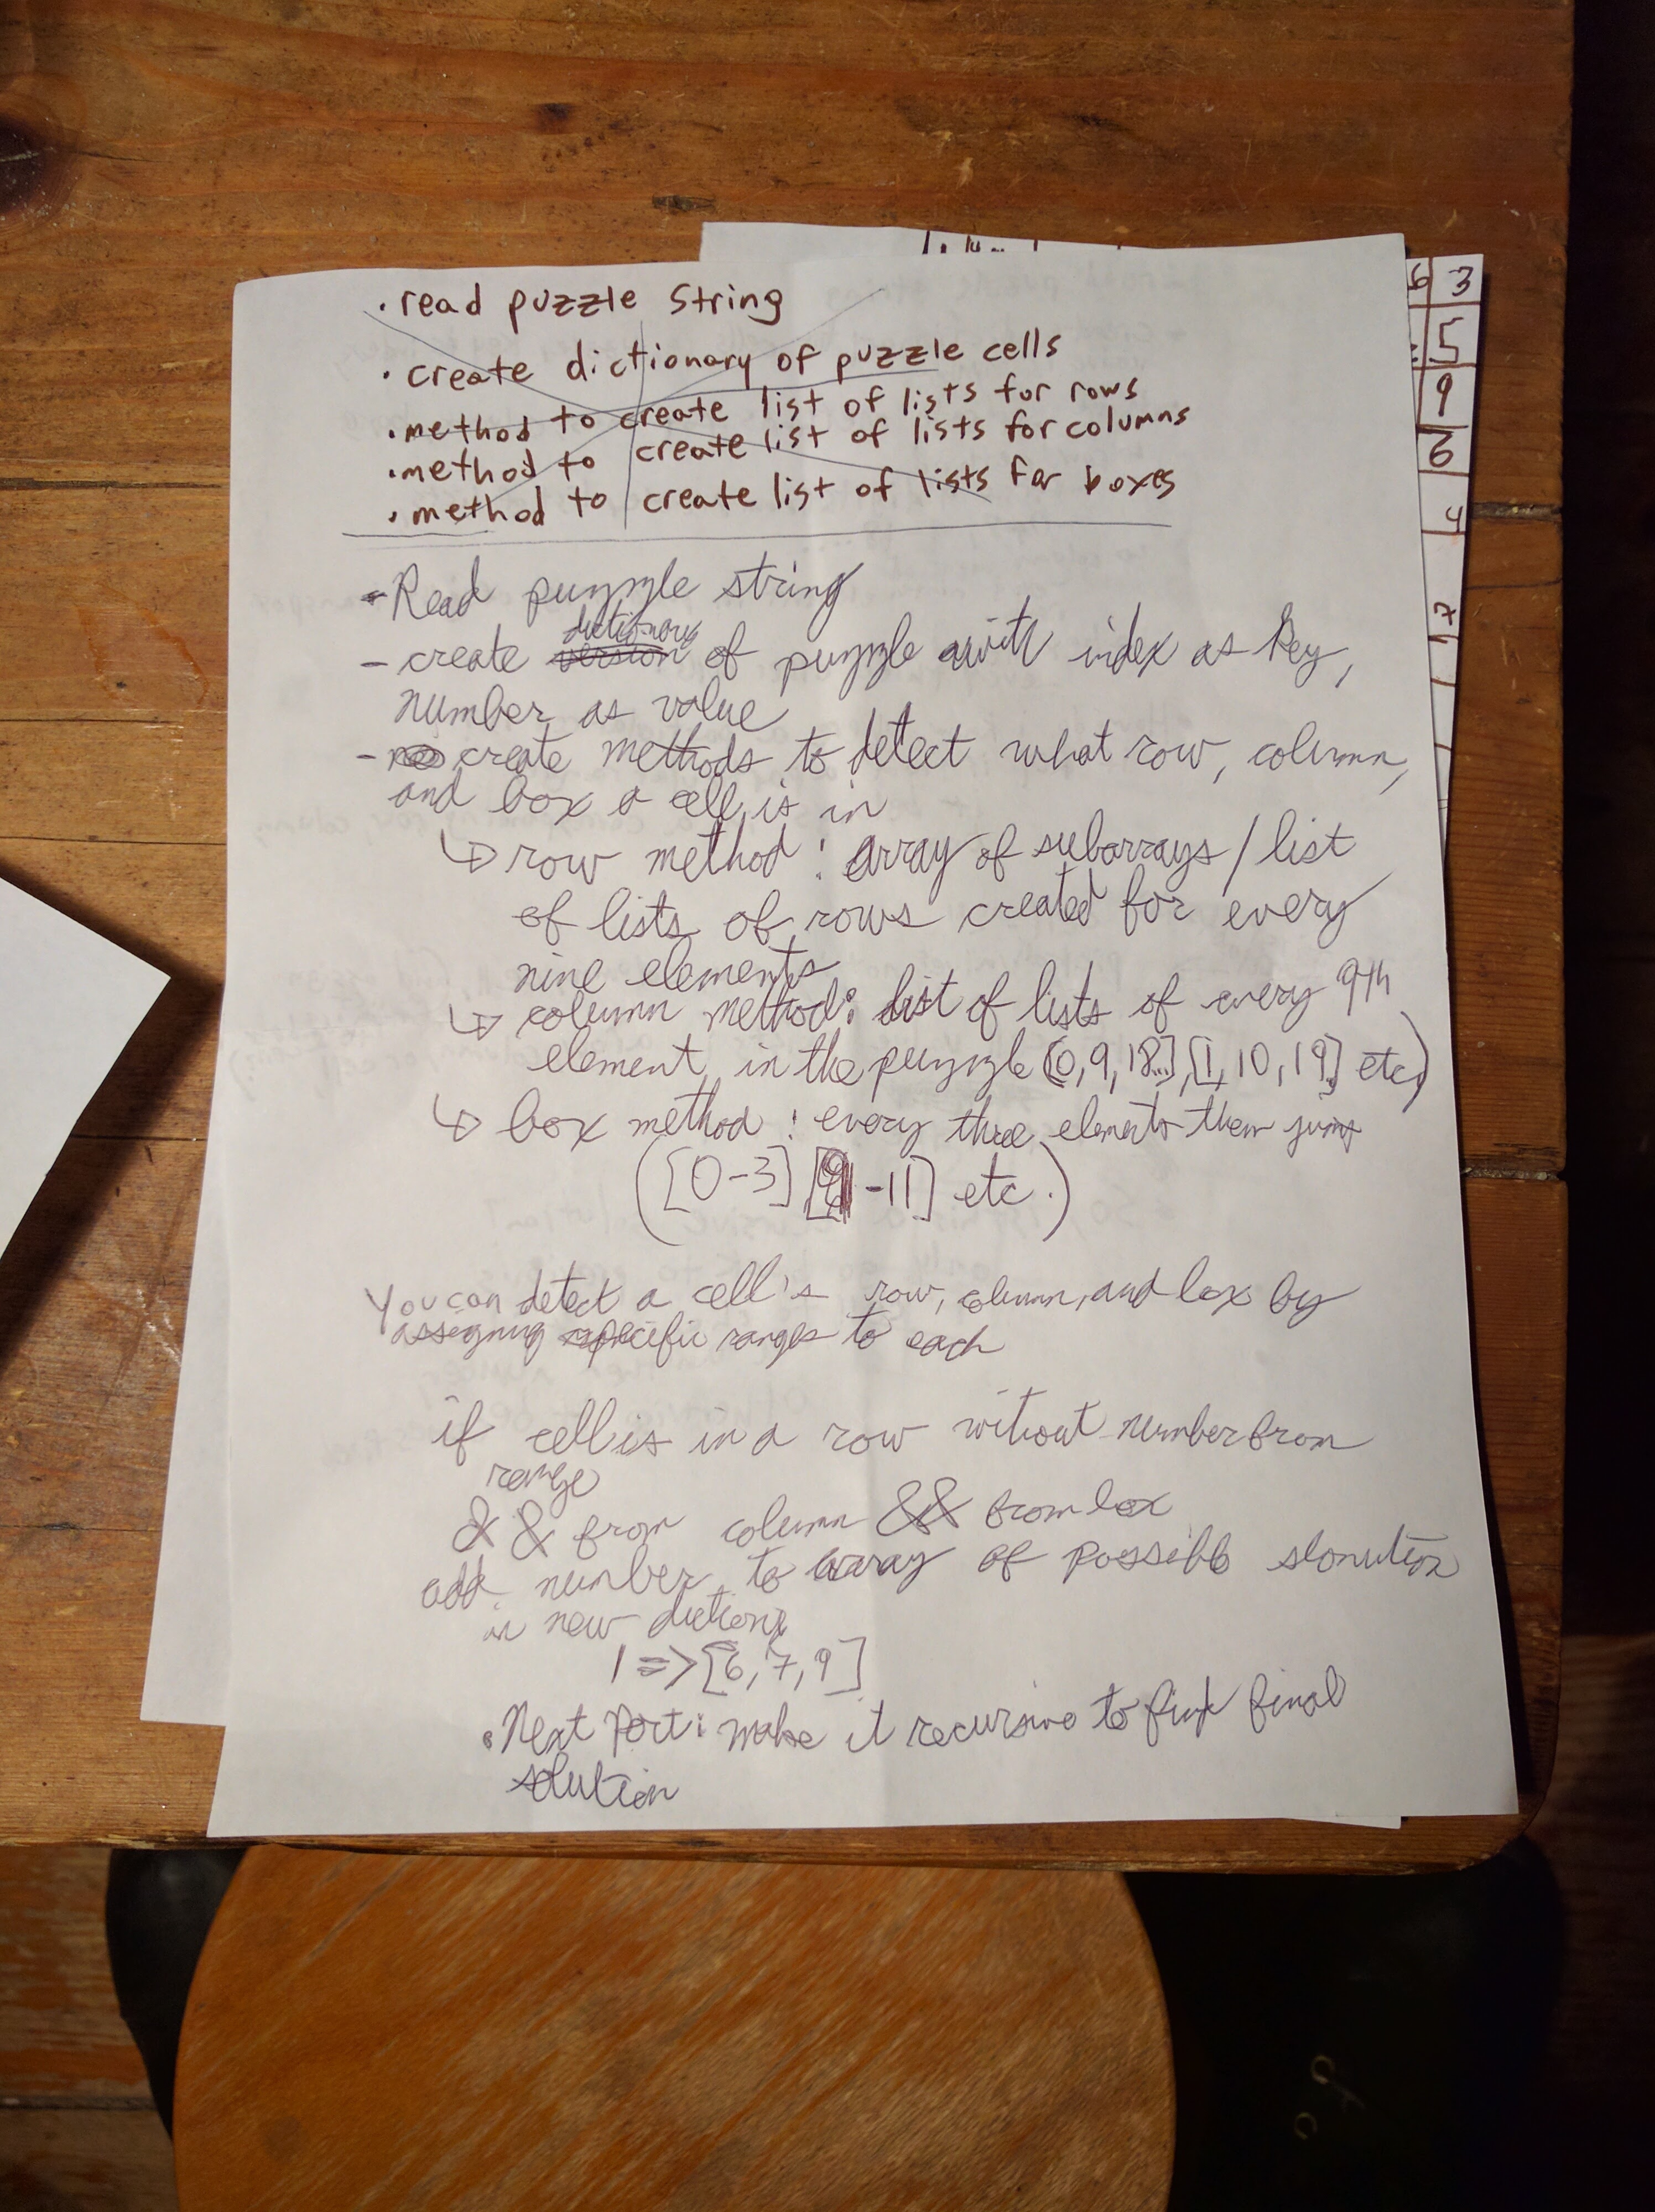 · read puzzle string
· create dictionary of puzzle cells
· method to create list of lists for rows
· method to create list of lists for columns
· method to create list of lists for boxes
- Read puzzle string
dictionary
- create version of puzzle with index as key,
number as value
- create methods to detect what row, column,
and box a cell is in
↳ row method: array of subarrays / list
of lists of rows created for every
nine elements
↳ column method: list of lists of every 9th
element in the puzzle [0,9,18...],[1,10,19] etc)
↳ box method: every three elements then jump
([0-3] [9-11] etc.)
You can detect a cell's row, column, and box by
assigning specific ranges to each
if cell is in a row without number from
range
&& from column && from box
add number to array of possible
in new
1 => [6,7,9]
· Next Part: make it recursive to find final
solution
6 3
5
9
6
4
7